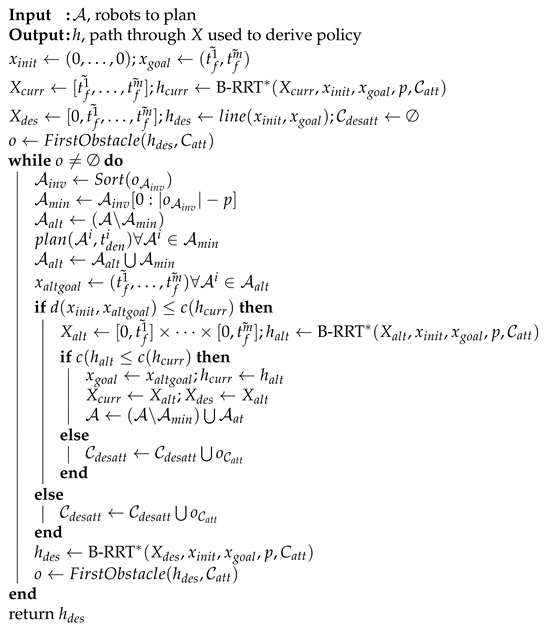 Input : 𝒜, robots to plan
Output: h, path through X used to derive policy
x_init ← (0, . . . , 0); x_goal ← (t̃_f^1, t̃_f^m)
X_curr ← [t̃_f^1, . . . , t̃_f^m]; h_curr ← B-RRT*(X_curr, x_init, x_goal, p, 𝒞_att)
X_des ← [0, t̃_f^1, . . . , t̃_f^m]; h_des ← line(x_init, x_goal); 𝒞_desatt ← ∅
o ← FirstObstacle(h_des, C_att)
while o ≠ ∅ do
𝒜_inv ← Sort(o_𝒜_inv)
𝒜_min ← 𝒜_inv[0 : |o_𝒜_inv| − p]
𝒜_alt ← (𝒜\𝒜_min)
plan(𝒜^i, t_den^i)∀𝒜^i ∈ 𝒜_min
𝒜_alt ← 𝒜_alt ⋃ 𝒜_min
x_altgoal ← (t̃_f^1, . . . , t̃_f^m)∀𝒜^i ∈ 𝒜_alt
if d(x_init, x_altgoal) ≤ c(h_curr) then
X_alt ← [0, t̃_f^1] × · · · × [0, t̃_f^m]; h_alt ← B-RRT*(X_alt, x_init, x_goal, p, 𝒞_att)
if c(h_alt ≤ c(h_curr) then
x_goal ← x_altgoal; h_curr ← h_alt
X_curr ← X_alt; X_des ← X_alt
𝒜 ← (𝒜\𝒜_min) ⋃ 𝒜_at
else
𝒞_desatt ← 𝒞_desatt ⋃ o_𝒞_att
end
else
𝒞_desatt ← 𝒞_desatt ⋃ o_𝒞_att
end
h_des ← B-RRT*(X_des, x_init, x_goal, p, C_att)
o ← FirstObstacle(h_des, 𝒞_att)
end
return h_des